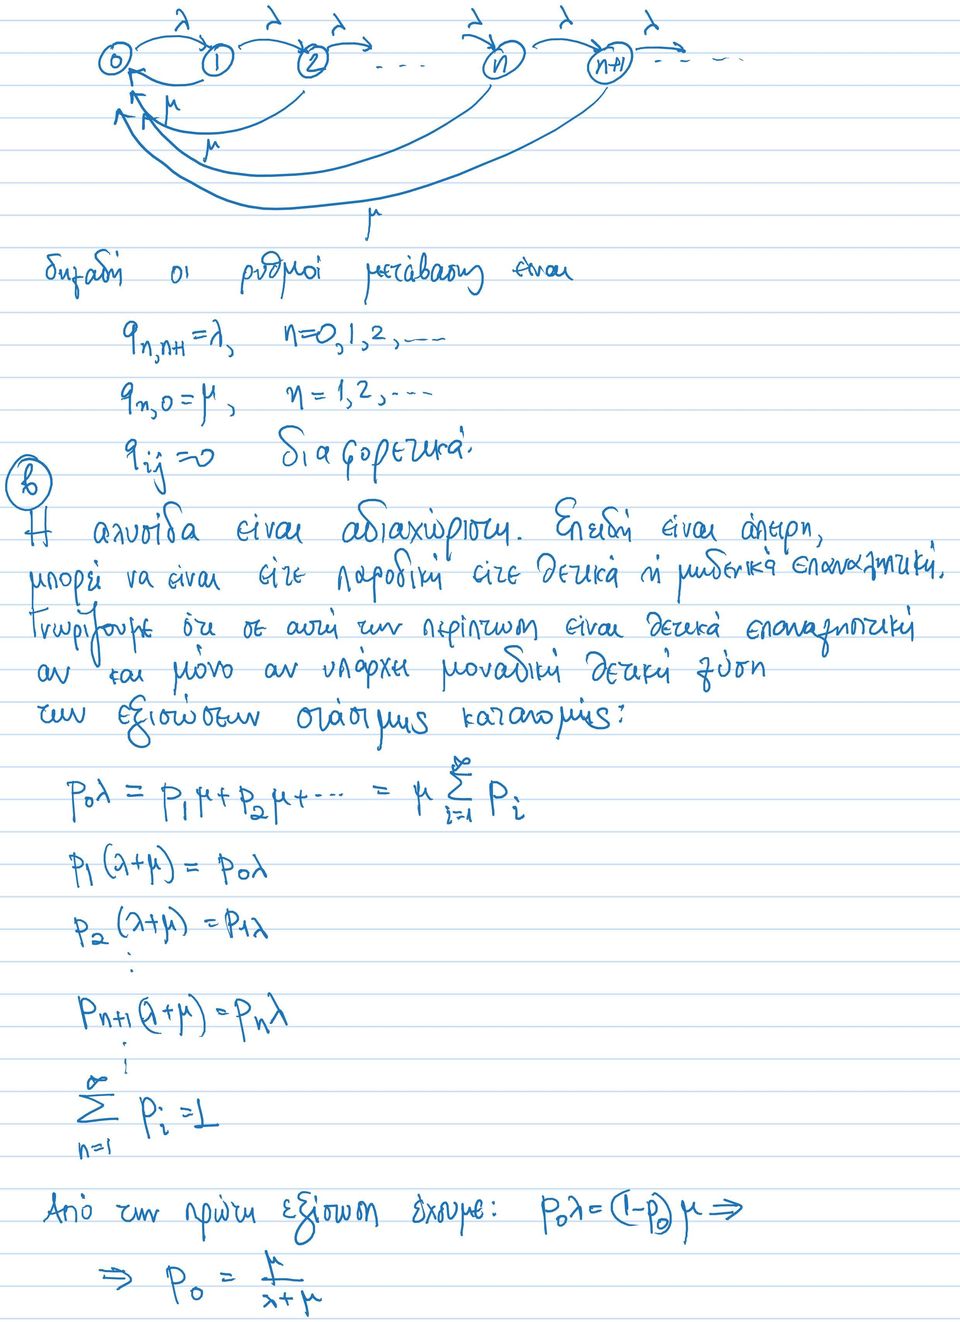 λ λ λ λ λ λ
0 1 2 ... n n+1 .....
μ
μ
μ
δηλαδή οι ρυθμοί μετάβασης είναι
q_{n,n+1} = λ, n=0,1,2,....
q_{n,0} = μ, n=1,2,...
q_{ij} = 0 διαφορετικά.
β
Η αλυσίδα είναι αδιαχώριστη. Επειδή είναι άπειρη,
μπορεί να είναι είτε παροδική είτε θετικά ή μηδενικά επαναληπτική.
Γνωρίζουμε ότι σε αυτή την περίπτωση είναι θετικά επαναληπτική
αν και μόνο αν υπάρχει μοναδική θετική λύση
των εξισώσεων στάσιμης κατανομής:
p_0 λ = p_1 μ + p_2 μ + ... = μ ∑_{i=1}^{∞} p_i
p_1 (λ+μ) = p_0 λ
p_2 (λ+μ) = p_1 λ
⋮
p_{n+1} (λ+μ) = p_n λ
⋮
∑_{n=1}^{∞} p_i = 1
Από την πρώτη εξίσωση έχουμε: p_0 λ = (1-p_0) μ ⇒
⇒ p_0 = μ/(λ+μ)